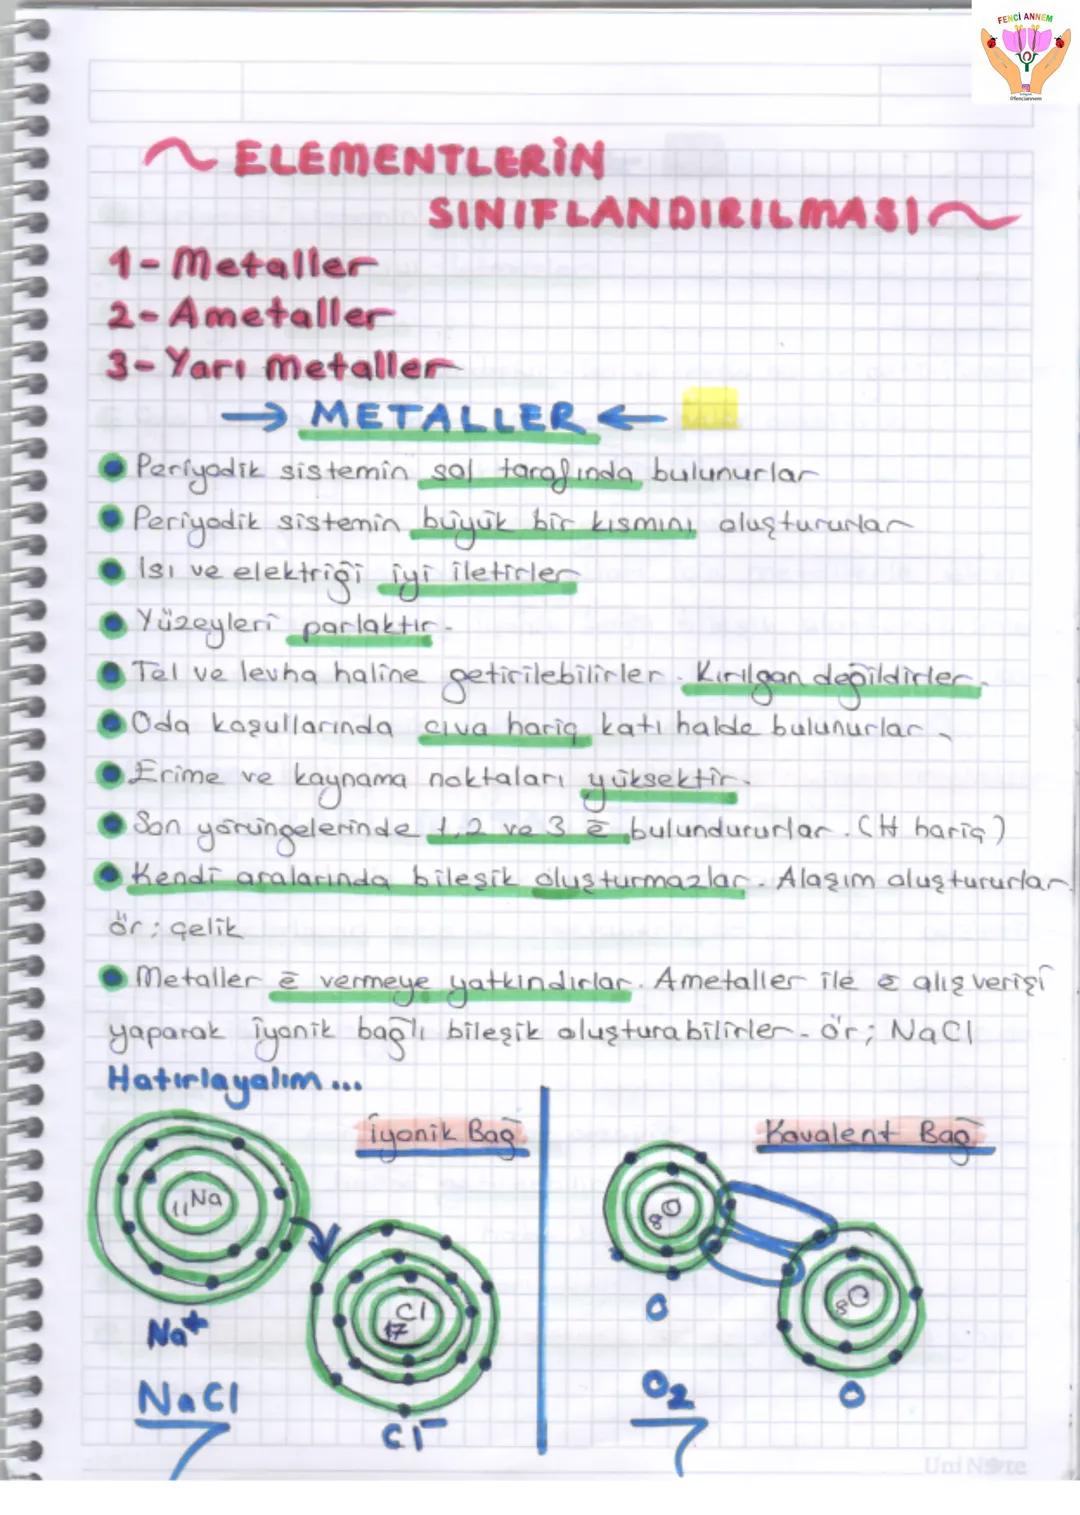 FENCİ ANNEM
@fenciannem
~ ELEMENTLERİN
SINIFLANDIRILMASI ~
1- Metaller
2- Ametaller
3- Yarı metaller
→ METALLER ←
Periyodik sistemin sol tarafında bulunurlar
Periyodik sistemin büyük bir kısmını oluştururlar
Isı ve elektriği iyi iletirler
Yüzeyleri parlaktır.
Tel ve levha haline getirilebilirler. Kırılgan değildirler.
Oda koşullarında cıva hariç katı halde bulunurlar.
Erime ve kaynama noktaları yüksektir.
Son yörüngelerinde 1,2 ve 3 ē bulundururlar. (H hariç)
Kendi aralarında bileşik oluşturmazlar. Alaşım oluştururlar
ör; çelik
Metaller ē vermeye yatkındırlar. Ametaller ile ē alış verişi
yaparak iyonik bağlı bileşik oluşturabilirler. ör; NaCl
Hatırlayalım...
İyonik Bağ
Kovalent Bağ
11Na
8O
Cl
17
8O
Na+
O
NaCl
Cl-
O2
O
Uni Note